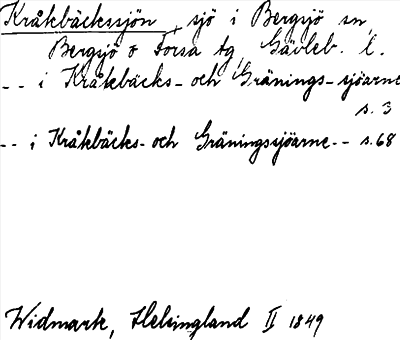 Kråkbäckssjön, sjö i Bergsjö sn,
Bergsjö o Forsa tg, Gävleb. l.
-- i Kråkbäcks- och Gränings-sjöarne
s. 3
-- i Kråkbäcks- och Gräningssjöarne-- s.68
Widmark, Helsingland II 1849